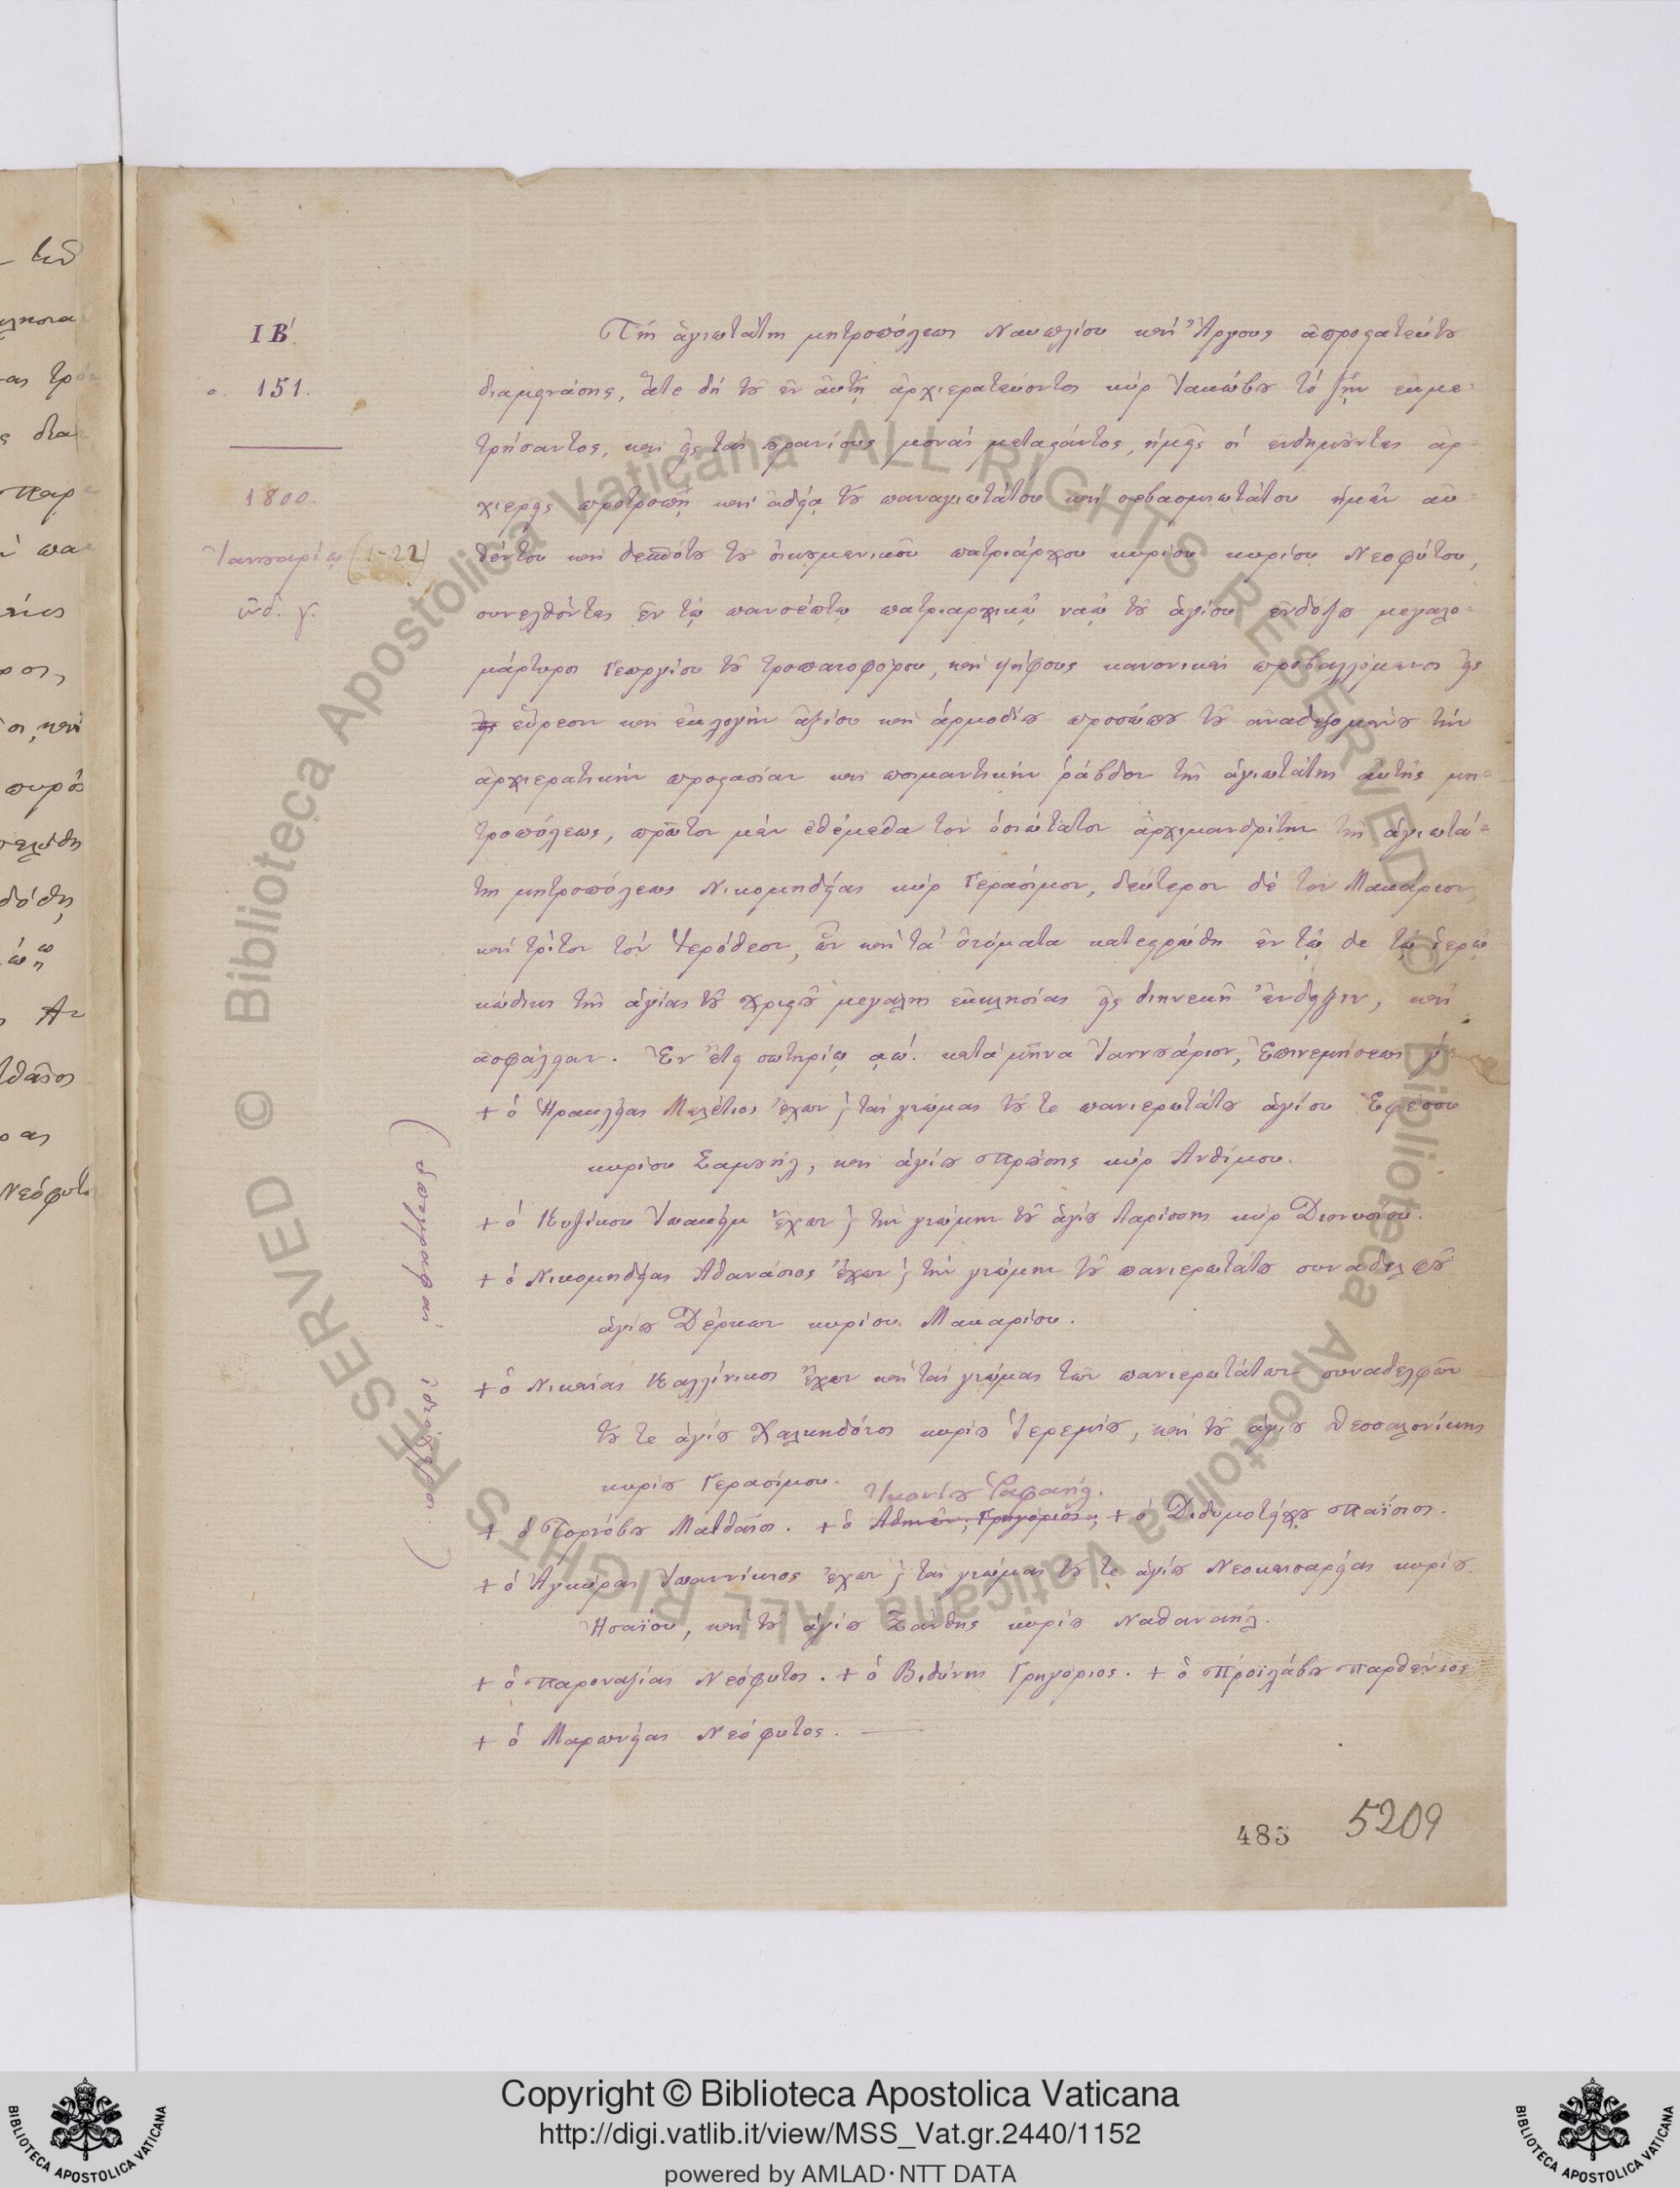 ΙΒ΄.
σ. 151.
1800.
Ἰανουαρίῳ (1-22)
ἰνδ. γ.
Τῆς ἁγιωτάτης μητροπόλεως Ναυπλίου καὶ Ἄργους ἀπροστατεύτου
διαμεινάσης, ἅτε δὴ τοῦ ἐν αὐτῇ ἀρχιερατεύοντος κὺρ Ἰακώβου τὸ ζῆν ἐκμε-
τρήσαντος, καὶ εἰς τὰς οὐρανίους μονὰς μεταστάντος, ἡμεῖς οἱ ἐνδημοῦντες ἀρ-
χιερεῖς προτροπῇ καὶ ἀδείᾳ τοῦ παναγιωτάτου καὶ σεβασμιωτάτου ἡμῶν αὐ-
θέντου καὶ δεσπότου τοῦ οἰκουμενικοῦ πατριάρχου κυρίου κυρίου Νεοφύτου,
συνελθόντες ἐν τῷ πανσέπτῳ πατριαρχικῷ ναῷ τοῦ ἁγίου ἐνδόξου μεγαλο-
μάρτυρος Γεωργίου τοῦ τροπαιοφόρου, καὶ ψήφους κανονικὰς προβαλλόμενοι εἰς
εὕρεσιν καὶ ἐκλογὴν ἀξίου καὶ ἁρμοδίου προσώπου τοῦ ἀναδεξομένου τὴν
ἀρχιερατικὴν προστασίαν καὶ ποιμαντικὴν ῥάβδον τῆς ἁγιωτάτης αὐτῆς μη-
τροπόλεως, πρῶτον μὲν ἐθέμεθα τὸν ὁσιώτατον ἀρχιμανδρίτην τῆς ἁγιωτά-
της μητροπόλεως Νικομηδείας κὺρ Γεράσιμον, δεύτερον δὲ τὸν Μακάριον,
καὶ τρίτον τὸν Ἱερόθεον, ὧν καὶ τὰ ὀνόματα κατεστρώθη ἐν τῷδε τῷ ἱερῷ
κώδικι τῆς ἁγίας τοῦ Χριστοῦ μεγάλης ἐκκλησίας εἰς διηνεκῆ ἔνδειξιν, καὶ
ἀσφάλειαν. Ἐν ἔτει σωτηρίῳ ͵αω΄. κατὰ μῆνα Ἰαννουάριον, Ἐπινεμήσεως γ΄
+ ὁ Ἡρακλείας Μελέτιος ἔχων καὶ τὰς γνώμας τοῦ τε πανιερωτάτου ἁγίου Ἐφέσου
κυρίου Σαμουήλ, καὶ ἁγίου Προύσης κὺρ Ἀνθίμου.
+ ὁ Κυζίκου Ἰωακεὶμ ἔχων καὶ τὴν γνώμην τοῦ ἁγίου Λαρίσσης κὺρ Διονυσίου.
+ ὁ Νικομηδείας Ἀθανάσιος ἔχων καὶ τὴν γνώμην τοῦ πανιερωτάτου συναδελφοῦ
ἁγίου Δέρκων κυρίου Μακαρίου.
+ ὁ Νικαίας Καλλίνικος ἔχων καὶ τὰς γνώμας τῶν πανιερωτάτων συναδελφῶν
τοῦ τε ἁγίου Χαλκηδόνος κυρίου Ἱερεμίου, καὶ τοῦ ἁγίου Θεσσαλονίκης
κυρίου Γερασίμου.
Ἰκονίου Ῥαφαήλ.
+ ὁ Τορνόβου Ματθαῖος. + ὁ Ἀθηνῶν, Γρηγόριος, + ὁ Διδυμοτείχου Παΐσιος.
+ ὁ Ἀγκύρας Ἰωαννίκιος ἔχων καὶ τὰς γνώμας τοῦ τε ἁγίου Νεοκαισαρείας κυρίου
Ἡσαΐου, καὶ τοῦ ἁγίου Ξάνθης κυρίου Ναθαναήλ.
+ ὁ Παροναξίας Νεόφυτος. + ὁ Βιδύνης Γρηγόριος. + ὁ Προϊλάβου Παρθένιος
+ ὁ Μαρωνείας Νεόφυτος.
485 5209
Copyright © Biblioteca Apostolica Vaticana
http://digi.vatlib.it/view/MSS_Vat.gr.2440/1152
powered by AMLAD·NTT DATA
BIBLIOTECA APOSTOLICA VATICANA
BIBLIOTECA APOSTOLICA VATICANA
© Biblioteca Apostolica Vaticana ALL RIGHTS RESERVED
© Biblioteca Apostolica Vaticana ALL RIGHTS RESERVED